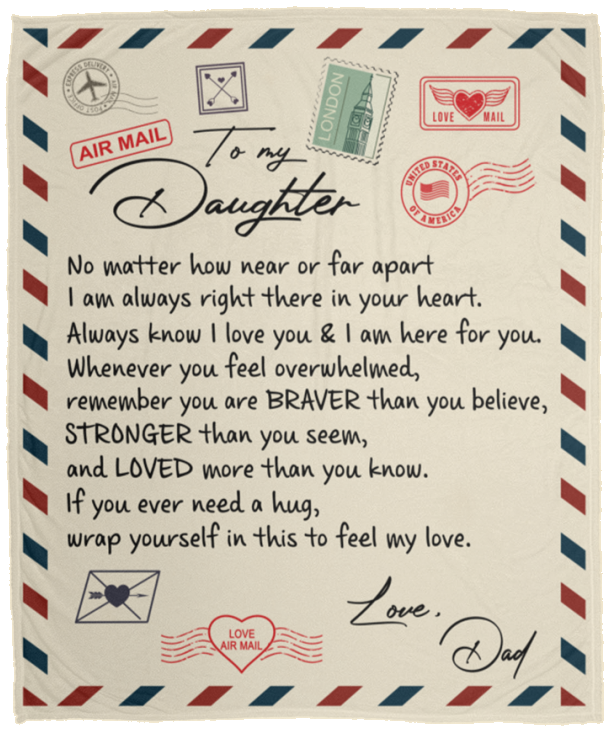 EXPRESS DELIVERY
AIR MAIL POST OFFICE
LONDON
LOVE MAIL
AIR MAIL
UNITED STATES
OF AMERICA
To my
Daughter
No matter how near or far apart
I am always right there in your heart.
Always know I love you & I am here for you.
Whenever you feel overwhelmed,
remember you are BRAVER than you believe,
STRONGER than you seem,
and LOVED more than you know.
If you ever need a hug,
wrap yourself in this to feel my love.
Love,
Dad
LOVE
AIR MAIL